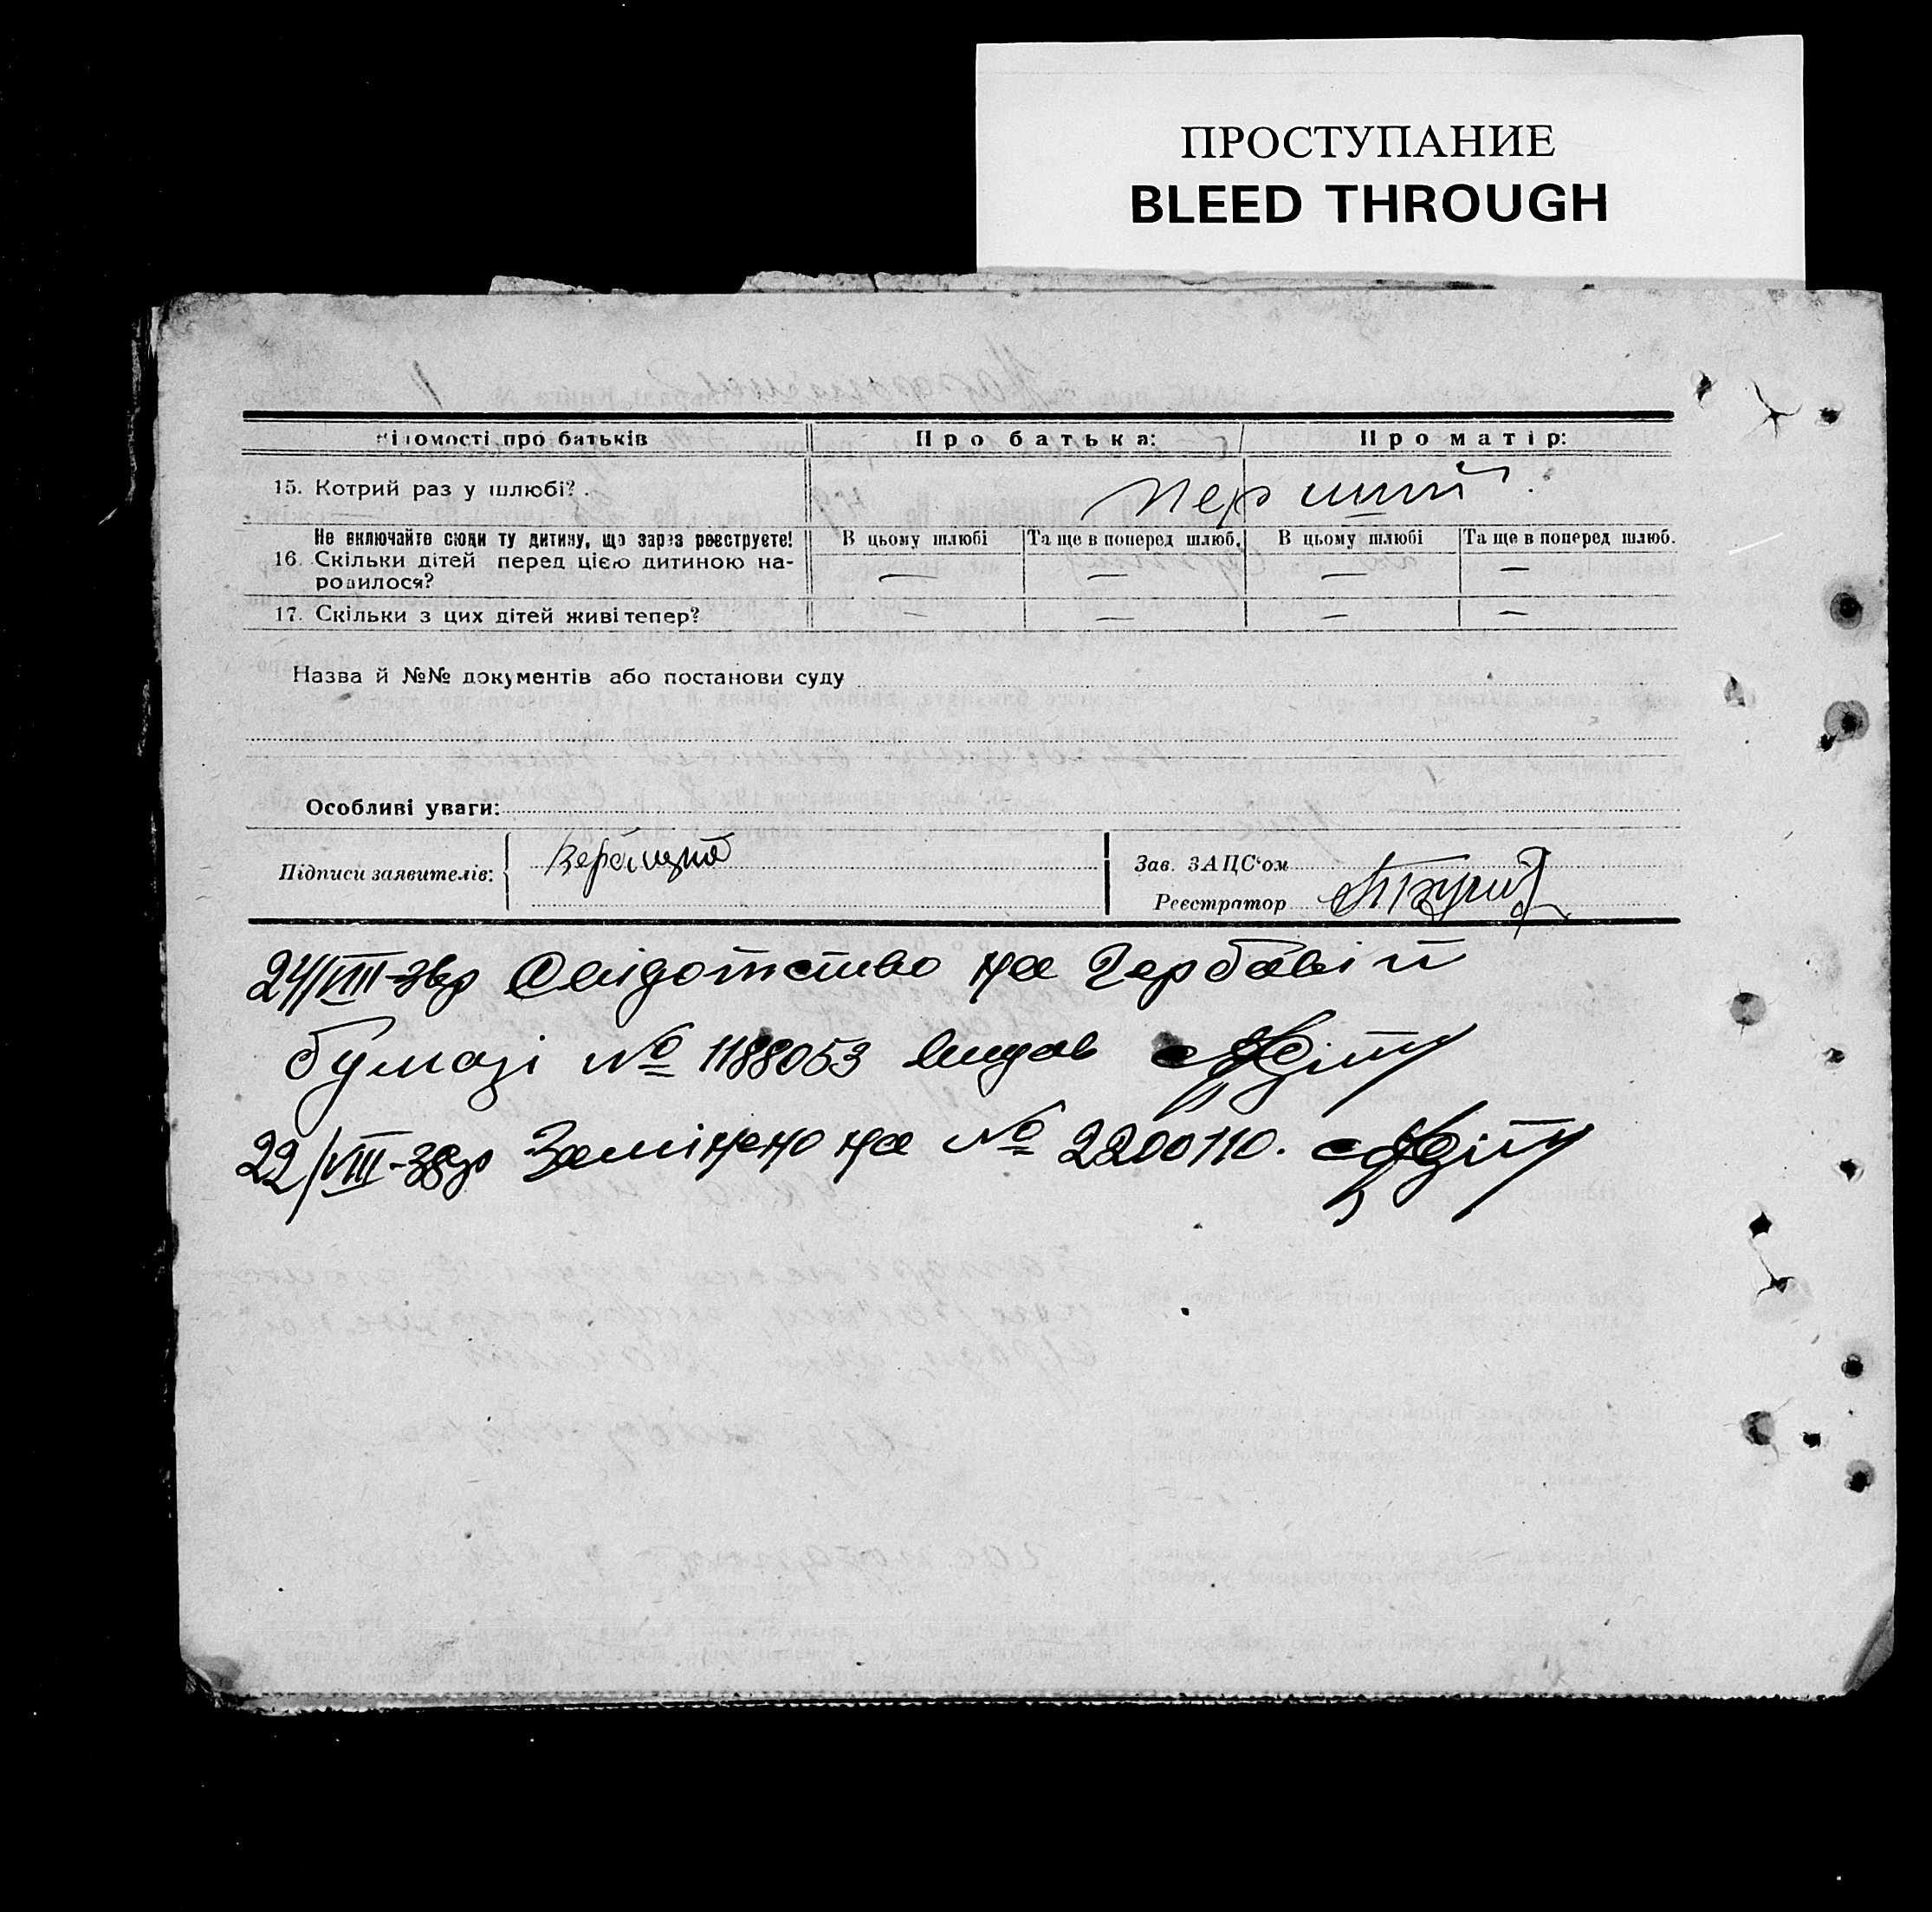 ПРОСТУПАНИЕ
BLEED THROUGH
ідомості про батьків Про батька: Про матір:
15. Котрий раз у шлюбі? . перший
Не включайте сюди ту дитину, що зараз реєструєте! В цьому шлюбі Та ще в поперед шлюб. В цьому шлюбі Та ще в поперед шлюб.
16. Скільки дітей перед цією дитиною на- — — — —
родилося?
17. Скільки з цих дітей живі тепер? — — — —
Назва й №№ документів або постанови суду
Особливі уваги:
Підписи заявителів: Зав. ЗАЦС'ом
Реєстратор
24/VIII-38р Свідотство на Гербовій
бумазі № 1188053 видав
22/VIII-38р Замінено на № 2200110.